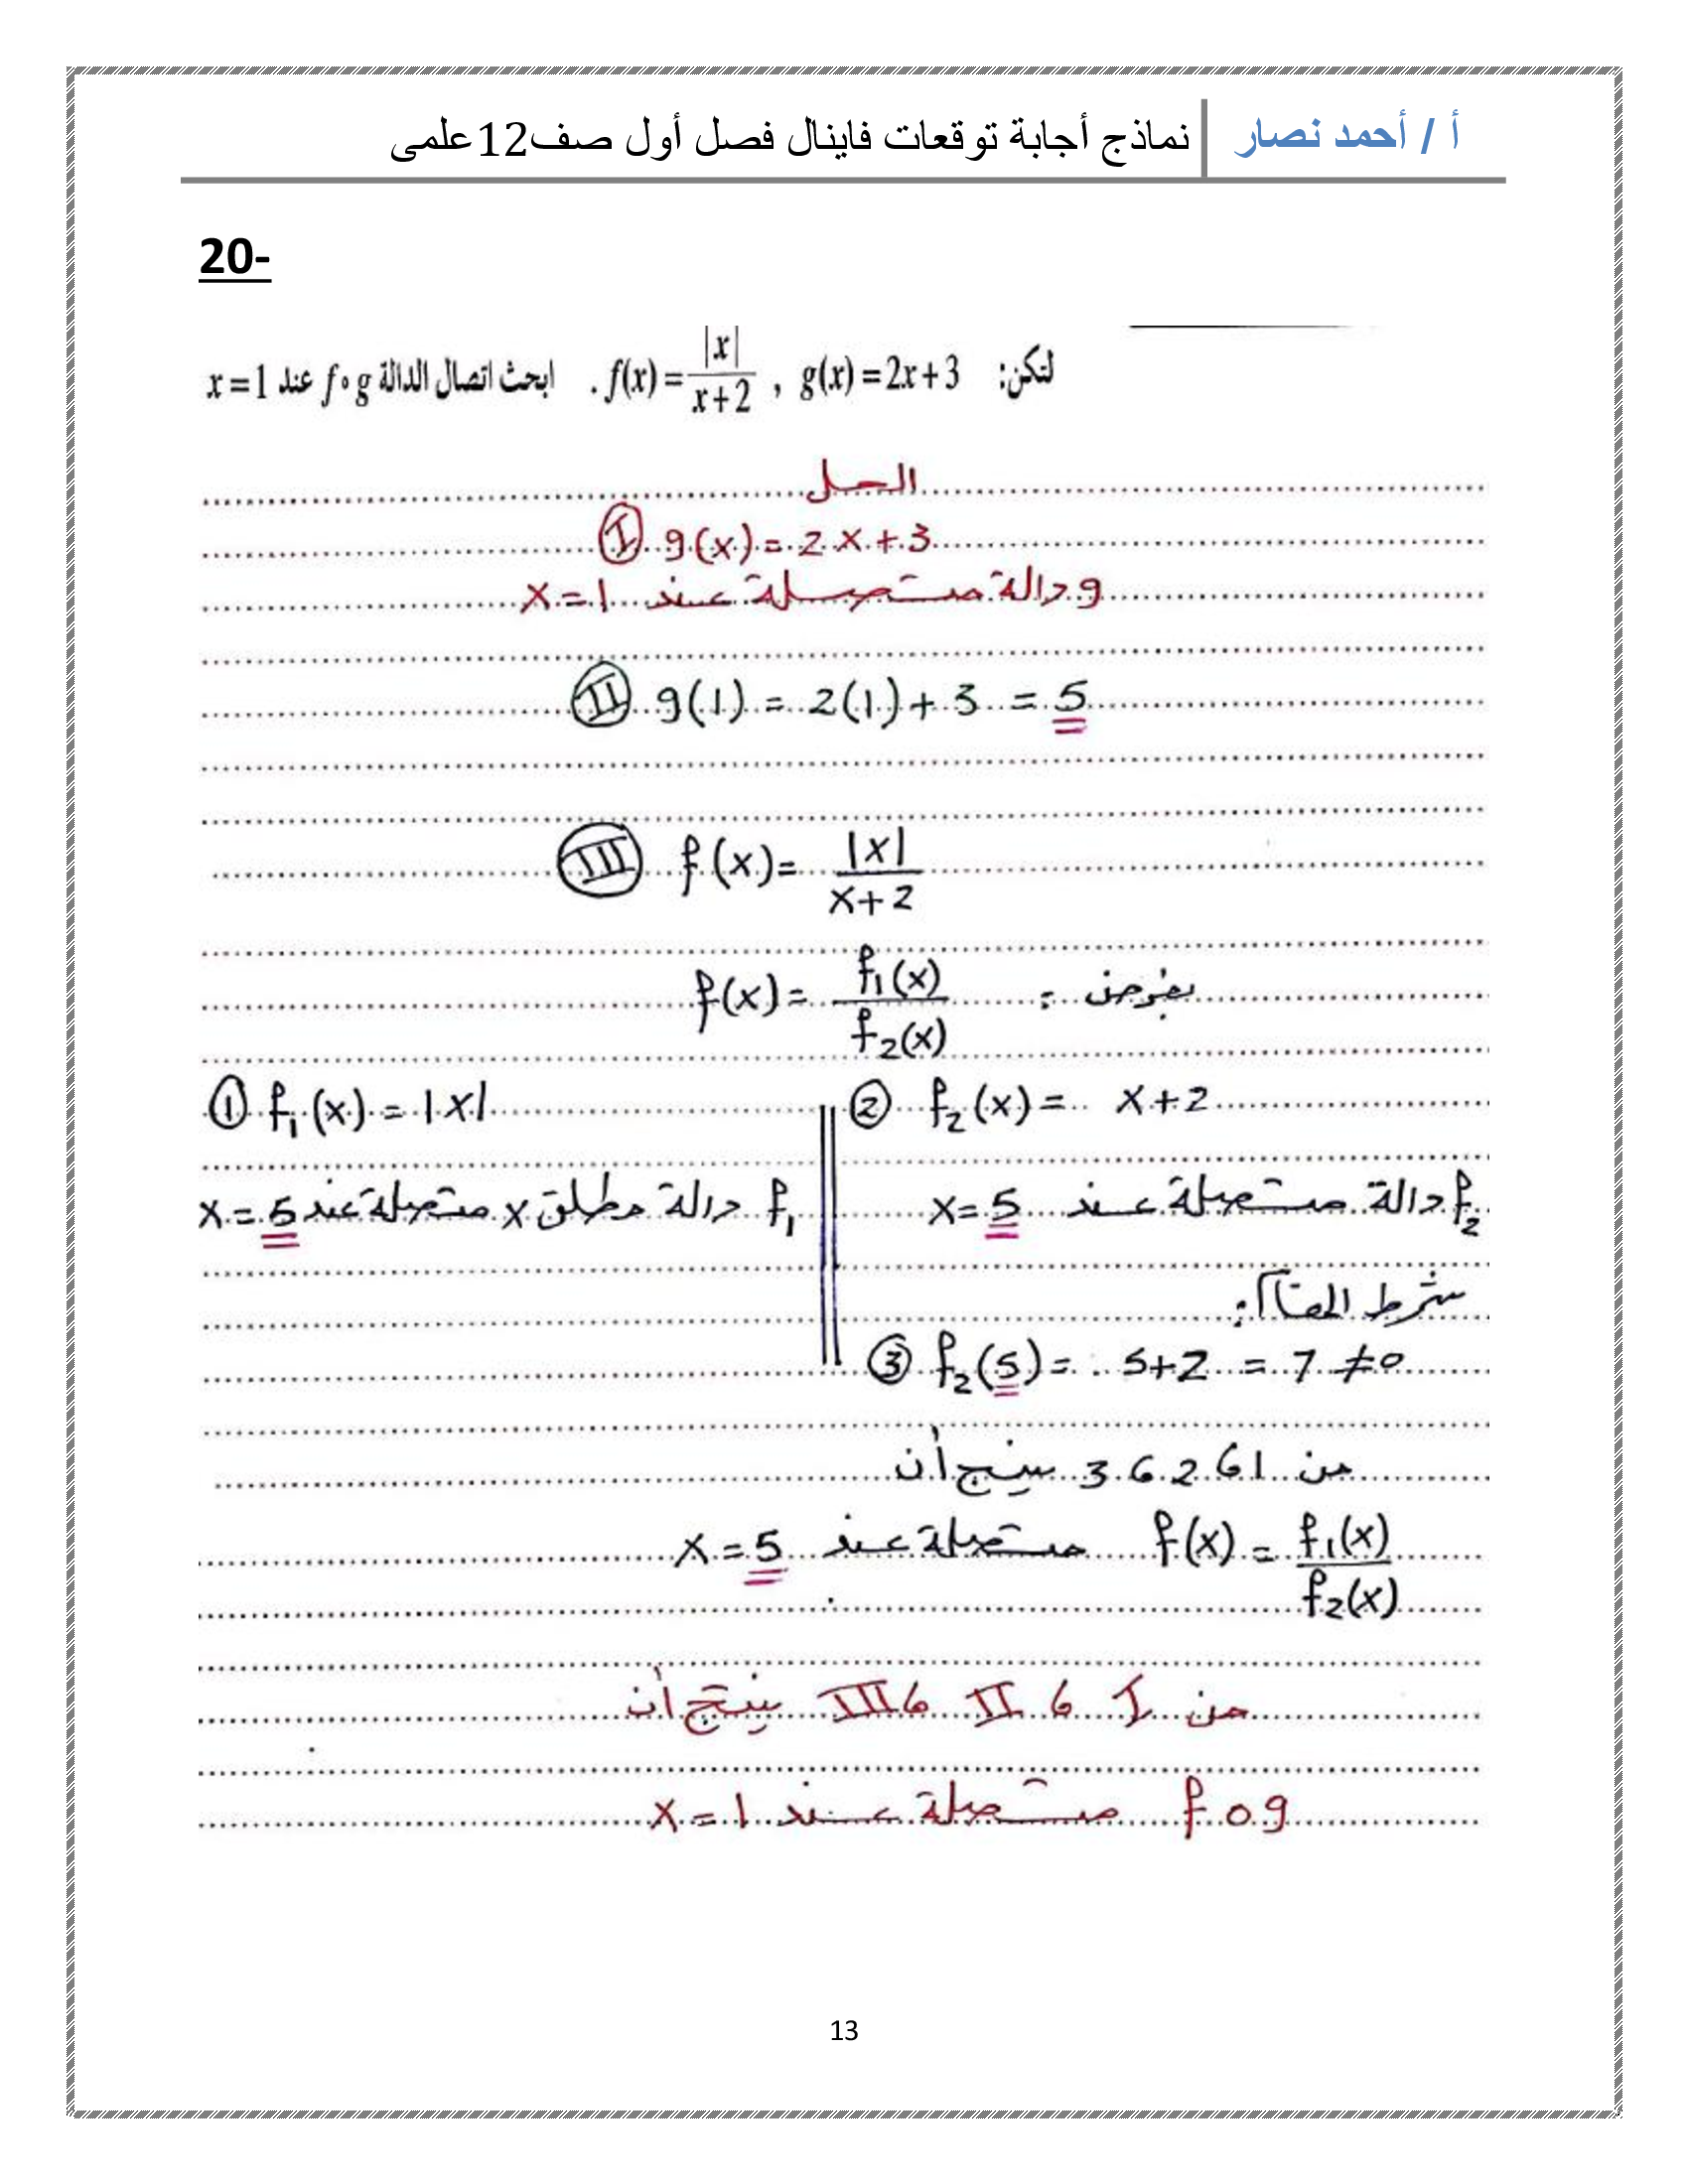 أ / أحمد نصار نماذج أجابة توقعات فاينال فصل أول صف12علمى
20-
لتكن: f(x)=|x|/(x+2) , g(x)=2x+3 . ابحث اتصال الدالة f∘g عند x=1
الحل
I g(x) = 2x+3
g دالة متصلة عند x=1
II g(1) = 2(1)+3 = 5
III f(x) = |x|/(x+2)
بفرض : f(x) = f₁(x)/f₂(x)
① f₁(x) = |x| ② f₂(x) = x+2
f₁ دالة مطلق x متصلة عند x=5 f₂ دالة متصلة عند x=5
شرط المقام:
③ f₂(5) = 5+2 = 7 ≠0
من 1 6 2 6 3 ينتج أن
f(x) = f₁(x)/f₂(x) متصلة عند x=5
من I 6 II 6 III ينتج أن
f o g متصلة عند x=1
13